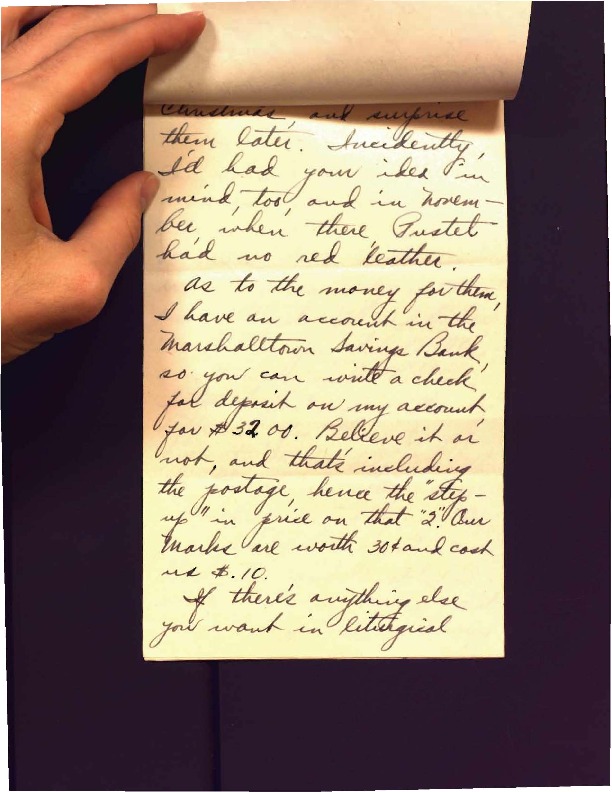 Christmas, and surprise
them later. Incidently,
I'd had your idea in
mind, too, and in Novem-
ber, when there Pustet
had no red leather.
As to the money for them,
I have an account in the
Marshalltown Savings Bank,
so you can write a check
for deposit on my account
for $32.00. Believe it or
not, and that's including
the postage, hence the "step-
up" in price on that "2". Our
Marks are worth 30¢ and cost
us $.10.
If there's anything else
you want in liturgical